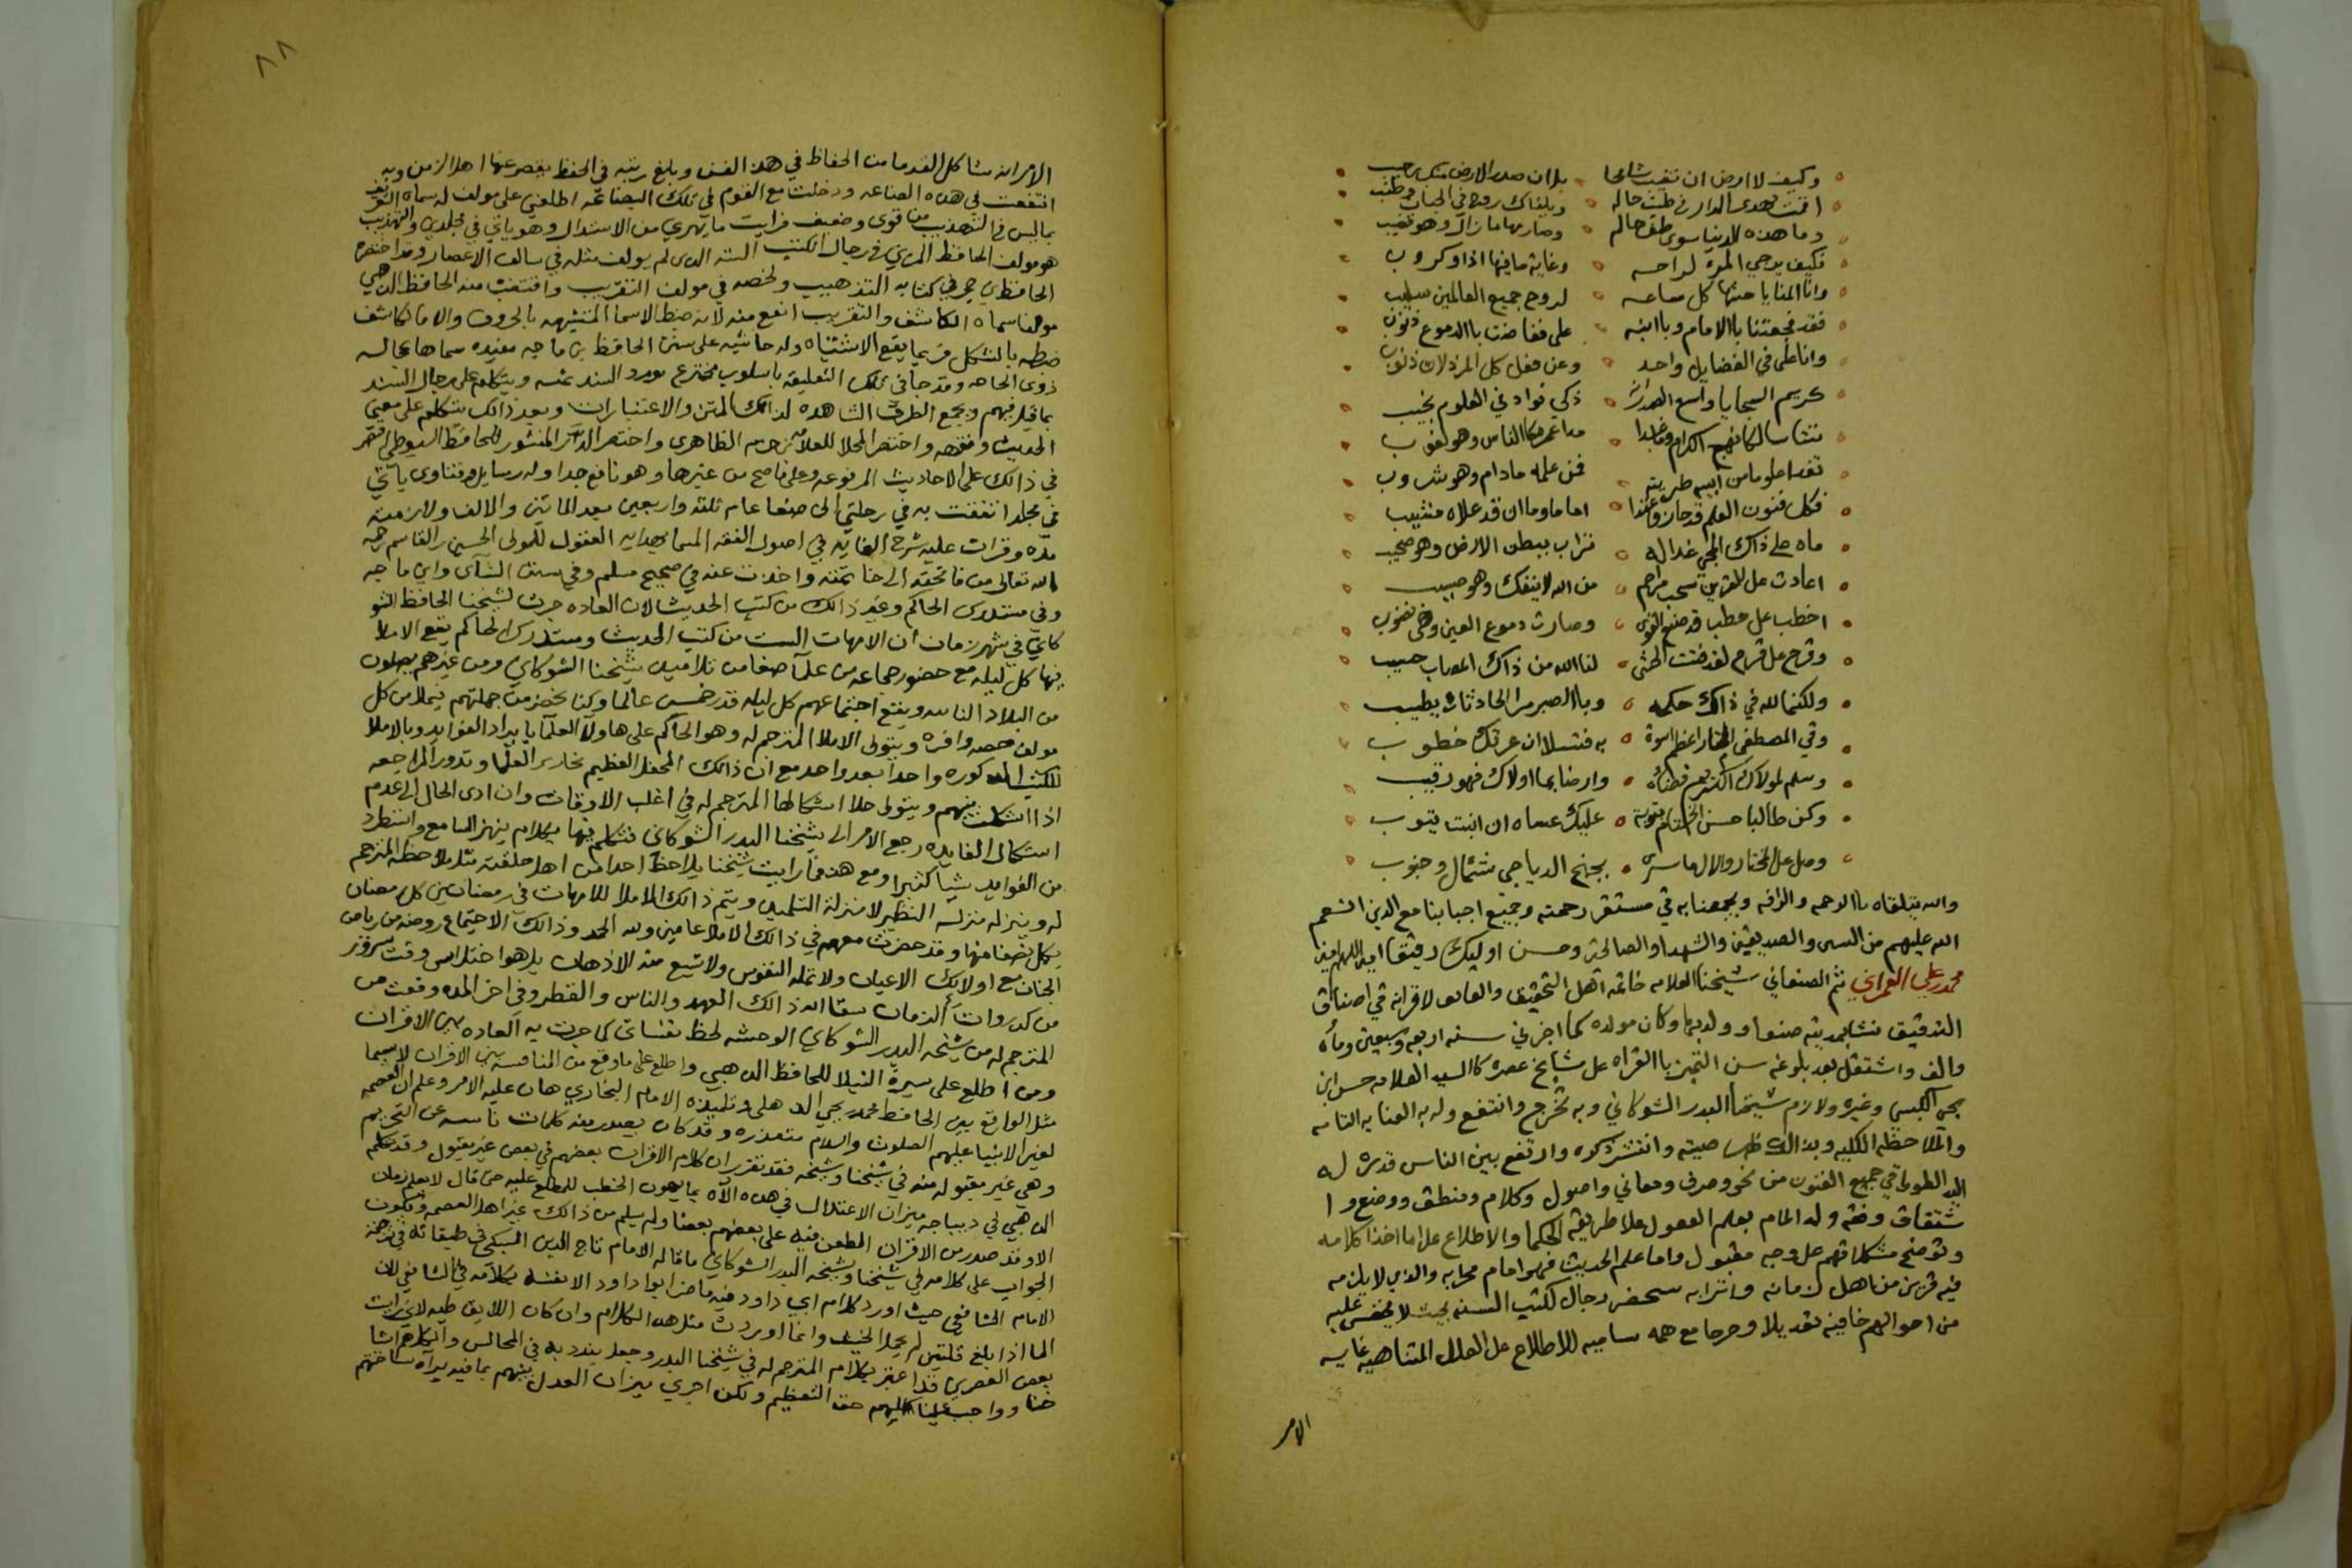 وكيف لا ارض ان تغيب شامخا بلان صدر الارض منك رحيب
وما هذه الدنيا سوى طيف حالم وصارمها ما زال وهو قضيب
فكيف يرجي المرء لراحه وغاية ما فيها اذا وكروب
وانا المنايا حثها كل ساعه لروح جميع العالمين سليب
فقد فجعتنا باالامام وباابنه على ففاضت باالدموع ذنوب
وانا على في الفضايل واحد وعن فعل كل المرذلات
كريم السجايا واسع الصدر ذكي فواد في العلوم نجيب
نشا سالكا نهج الكرام
فمن علمه مادام وهو شروب
فكل فنون العلم قد حاز اماما وما ان قد علاه مشيب
ماه على ذاك المحي غدا له تراب ببطن الارض وهو
من الله لا ينفك وهو
وصارت دموع العين وهي
وقرح على قرح لقد لنا الله من ذاك المصاب حسيب
ولكنما لله في ذالك حكمه وباالصبر مر الحادثات يطيب
وفي المصطفى المختار اعظم اسوة به فتسلا ان عرتك خطوب
وسلم لمولاك الكريم قضائه وارضا بما اولاك فهو رقيب
وكن طالبا حسن الختام بتوبة عليك عساه ان انبت يتوب
وصل على المختار والال ما سرى بجنح الدياجي شمال وجنوب
والله يتلقاه باالرحمه والرافه ويجمعنا به في مستقر رحمته وجميع احبابنا مع الذين انعم
الله عليهم من النبيين والصديقين والشهدا والصالحين وحسن اوليك رفيقا امين اللهم امين
محمد بن علي العمراني ثم الصنعاني شيخنا العلامه خاتمة اهل التحقيق والفايق لاقرانه في اصناف
التدقيق نشا بمدينه صنعا وولد بها وكان مولده كما اخبرني سنه اربعه وتسعين ومائه
والف واشتغل بعد بلوغه سن التميز باالقراه على مشايخ عصره كالسيد العلامه حسن ابن
يحيى الكبسي وغيره ولازم شيخنا البدر الشوكاني وبه تخرج وانتفع وله به العنايه التامه
والملاحظه الكليه وبذالك طار صيته وانتشر ذكره وارتفع بين الناس قدره له
اليد الطولى في جميع الفنون من نحو وصرف ومعاني واصول وكلام ومنطق ووضع وا
شتقاق وفقه وله المام بعلم المعقول على طريقه الحكما والاطلاع على ما اخذ كلامه
وتوضح مشكلاتهم على وجه مقبول واما علم الحديث فهو امام محرابه والذي لا يلزمه
فيه قرين من اهل زمانه واترابه يستحضر رجال كتب السنه بحيث لا يخفى عليه
من احوالهم خافيه تعديلا وجرحا مع همه ساميه للاطلاع على العلل المتناهيه غايه
الامر
٨٨
الامر انه شاكل القدما من الحفاظ في هذا الفن وبلغ رتبه في الحفظ يقصر عنها اهل الزمن وبه
انتفعت في هذه الصناعه ودخلت مع القوم في تلك البضاعه اطلعني على مولف له سماه التعريف
بماليس في التهذيب من قوى وضعيف فرايت ما يهري من الاستدراك وهو ياتي في مجلدين والتهذيب
هو مولف الحافظ المزي في رجال الكتب السته الذي لم يولف مثله في سالف الاعصار وقد اختصره
الحافظ بن حجر في كتابه التذهيب ولخصه في مولف التقريب واقتضب منه الحافظ الذهبي
مولفا سماه الكاشف والتقريب انفع منه لانه ضبط الاسما المشتبهه بالحروف والا ما الكاشف
ضبطه بالشكل فربما يقع الاشتباه وله حاشيه على سنن الحافظ بن ماجه مفيده سماها عجاله
ذوى الحاجه وقد جا في تلك التعليقه باسلوب مخترع يورد السند عنه ويتكلم على رجال السند
بما قيل فيهم ويجمع الطرف الشاهده لذالك المتن والاعتبارات وبعد ذالك يتكلم على معنى
الحديث وفقهه واختصر المحلا للعلامه بن حزم الظاهرى واختصر الدر المنثور للحافظ السيوطي اقتصر
في ذالك على الاحاديث المرفوعه وعلى ما صح من غيرها وهو نافع جدا وله رسايل وفتاوى ياتي
في مجلد انتفعت به في رحلتي الى صنعا عام ثلثه واربعين بعد الماتين والالف ولازمته
مده وقرات عليه شرح الغايه في اصول الفقه المسما بهدايه العقول للمولى الحسين بن القاسم رحمه
الله تعالى من فاتحته الى خاتمته واخذت عنه في صحيح مسلم وفي سنن النسآى وابن ماجه
وفي مستدرك الحاكم وغير ذالك من كتب الحديث لان العاده جرت لشيخنا الحافظ الشو
كاني في شهر رمضان ان الامهات الست من كتب الحديث ومستدرك الحاكم يقع الاملا
فيها كل ليله مع حضور جماعه من علمآ صنعا من تلاميذ شيخنا الشوكاني ومن غيرهم يصلون
من البلاد النايه ويقع اجتماعهم كل ليله قدر خمسين عالما وكنا نحضر من جملتهم فيملا من كل
مولف حصه وافره ويتولى الاملا المترجم له وهو الحاكم على هاولآ العلمآ بايراد الفوايد وبالاملا
للكتب المذكوره واحدا بعد واحد مع ان ذالك المحفل العظيم نحارير العلما وتدور المراجعه
اذا اشكلت بينهم ويتولى حل اشكالها المترجم له في اغلب الاوقات وان ادى الحال الى عدم
استكمال الفايده رجع الامر الى شيخنا البدر الشوكاني فتكلم فيها بكلام يبهر السامع واستطرد
من الفوايد شيا كثيرا ومع هذا فما رايت شيخنا يلاحظ احدا من اهل حلقته مثل ملاحظه المترجم
له وينزله منزله النظير لا منزلة التلميذ ويتم ذالك الاملا للامهات في رمضانين كل رمضان
يكمل نصفا منها وقد حضرت معهم في ذالك الاملا عامين ولله الحمد وذالك الاجتماع روضه من رياض
الجنان مع اولايك الاعيان ولا تمله النفوس ولا تشبع منه الاذهان بل هو اختلاس وقت سرور
من كدروات الزمان سقا الله ذالك العهد والناس والقطر وفي اخر المده وقعت من
المترجم له من شيخه البدر الشوكاني الوحشه لحظ نفساني كما جرت به العاده بين الاقران
ومن اطلع على سيرة النبلا للحافظ الذهبي واطلع على ماوقع من المنافسه بين الاقران لاسيما
مثل الواقع بين الحافظ محمد بن يحي الذهلى وتلميذه الامام البخاري هان عليه الامر وعلم ان العصمه
لغير الانبيا عليهم الصلوت والسلام متعذره وقد كان يصدر منه كلمات ناشيه عن التحريم
وهي غير مقبوله منه في شيخنا وشيخه فقد تقرر ان كلام الاقران بعضهم في بعض غير مقبول وقد تكلم
الذهبي في ديباجه ميزان الاعتدال في هذه الآه بما يهون الخطب للمطلع عليه حتى قال لا يعلم زمان
الا وقد صدر من الاقران الطعن فيه على بعضهم بعضا ولم يسلم من ذالك غير اهل العصمه ويكون
الجواب على كلامه في شيخنا وشيخه البدر الشوكاني ما قاله الامام تاج الدين السبكي في طبقاته في ترجمة
الامام الشافعي حيث اورد كلام ابي داود فيه ما ضر ابوا داود الا نفسه بكلامه في الشافعي لان
الما اذا بلغ قلتين لم يحمل الخبث وانما اوردت مثل هذا الكلام وان كان اللايق طيه لاني رايت
بعض العصرين قد اعتر بكلام المترجم له في شيخنا البدر وجعل يندد به في المجالس والكل هم مشا
خنا وواجب علينا كلهم حقه التعظيم ولكن اجرى ميزان العدل بينهم بما فيه برآه ساحتهم